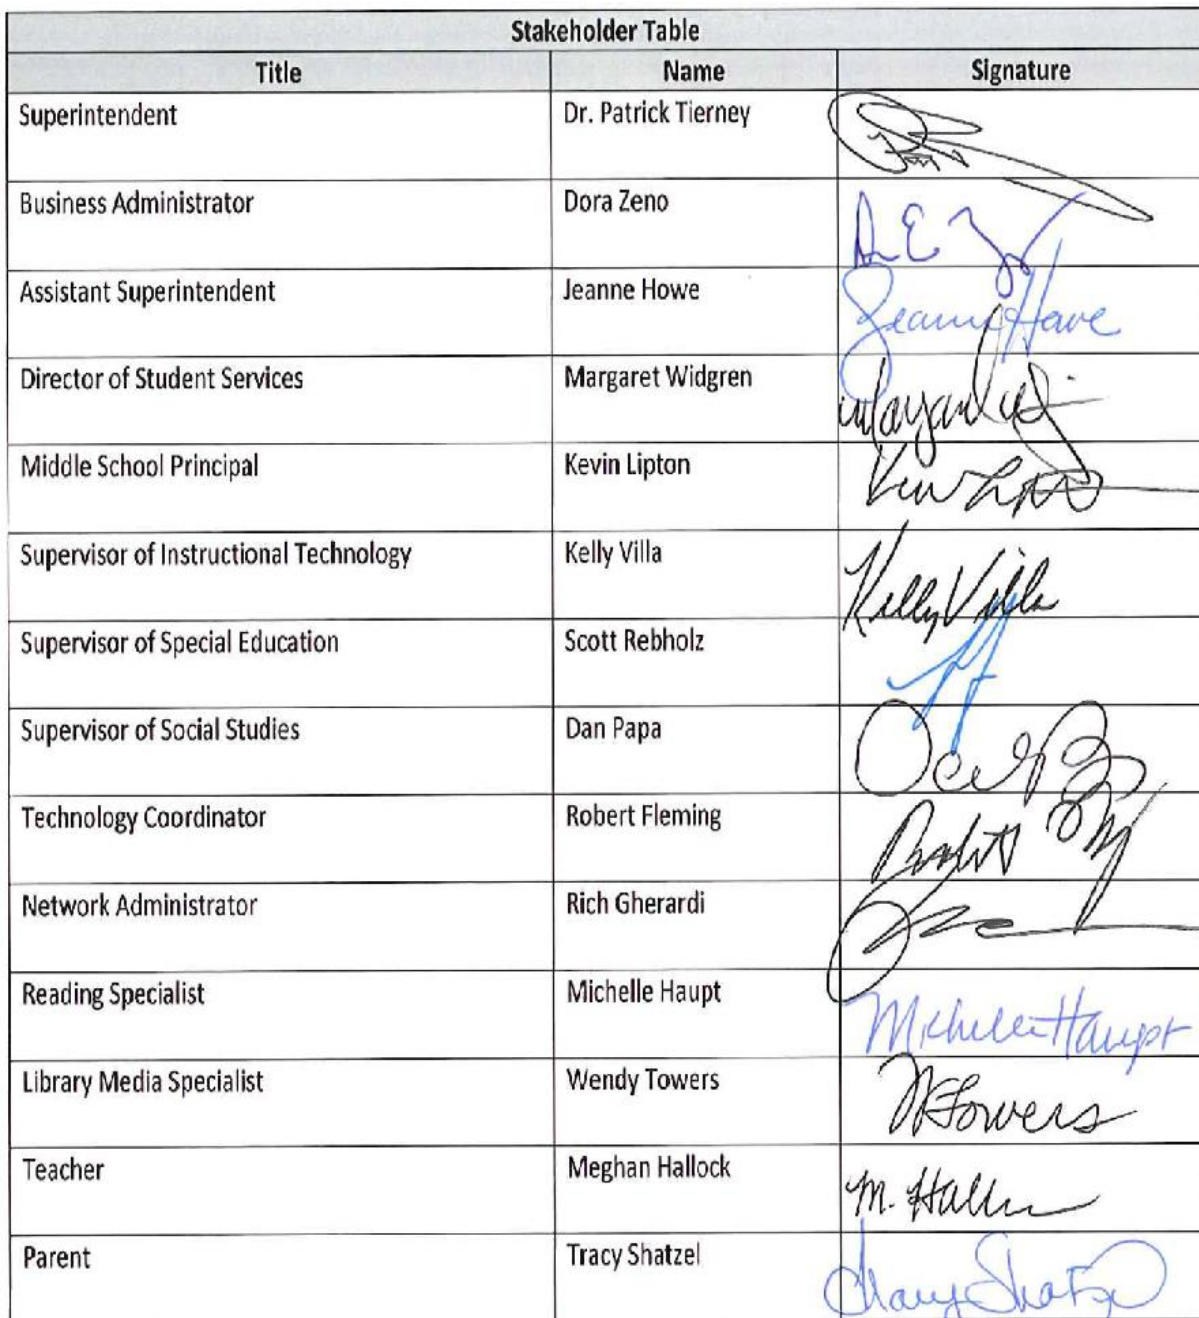 Stakeholder Table
Title Name Signature
Superintendent Dr. Patrick Tierney
Business Administrator Dora Zeno
Assistant Superintendent Jeanne Howe Jeanne Howe
Director of Student Services Margaret Widgren
Middle School Principal Kevin Lipton
Supervisor of Instructional Technology Kelly Villa Kelly Villa
Supervisor of Special Education Scott Rebholz
Supervisor of Social Studies Dan Papa
Technology Coordinator Robert Fleming
Network Administrator Rich Gherardi
Reading Specialist Michelle Haupt Michelle Haupt
Library Media Specialist Wendy Towers W Towers
Teacher Meghan Hallock M.
Parent Tracy Shatzel